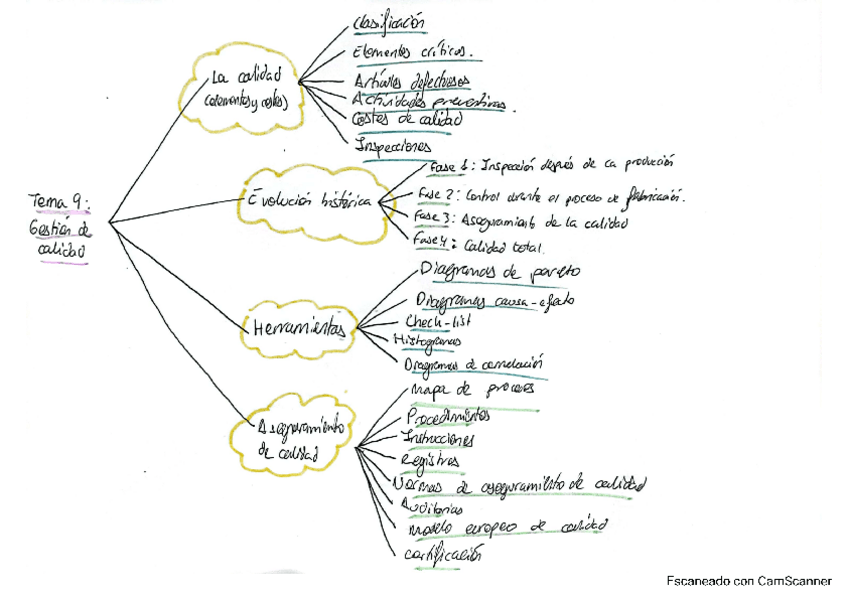 Tema 9:
Gestión de
calidad
La calidad
(elementos y costes)
Clasificación
Elementos críticos.
Artículos defectuosos
Actividades preventivas.
Costes de calidad
Inspecciones
Evolución histórica
Fase 1: Inspección después de la producción
Fase 2: Control durante el proceso de fabricación.
Fase 3: Aseguramiento de la calidad
Fase 4: Calidad total.
Herramientas
Diagramas de pareto
Diagramas causa-efecto
Check-list
Histogramas
Diagramas de correlación
Aseguramiento
de calidad
Mapa de procesos
Procedimientos
Instrucciones
Registros
Normas de aseguramiento de calidad
Auditorias
Modelo europeo de calidad
Certificación
Escaneado con CamScanner